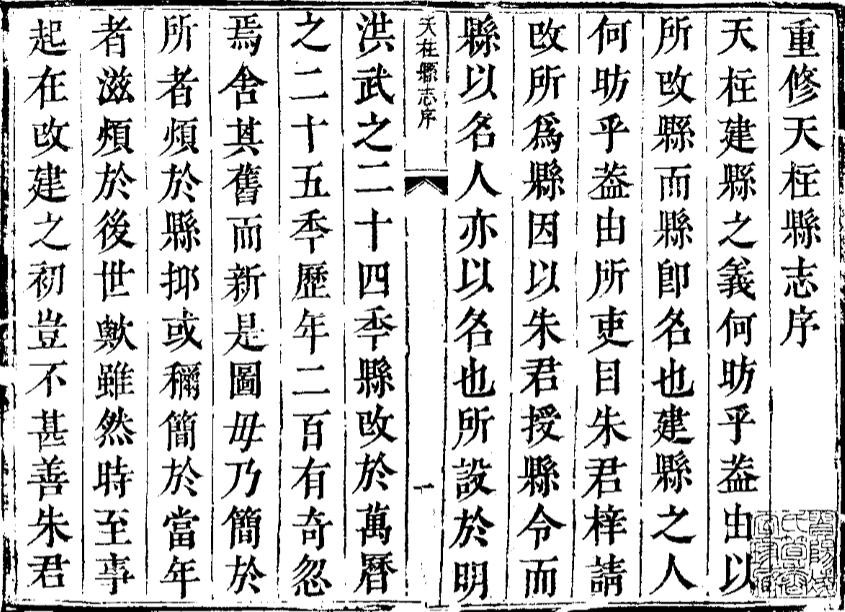 重修天柱縣志序
天柱建縣之義何昉乎葢由以
所改縣而縣卽名也建縣之人
何昉乎葢由所吏目朱君梓請
改所爲縣因以朱君授縣令而
縣以名人亦以名也所設於明
天柱縣志序
一
洪武之二十四秊縣改於萬曆
之二十五秊歷年二百有奇忽
焉舍其舊而新是圖毋乃簡於
所者煩於縣抑或稱簡於當年
者滋煩於後世歟雖然時至事
起在改建之初豈不甚善朱君